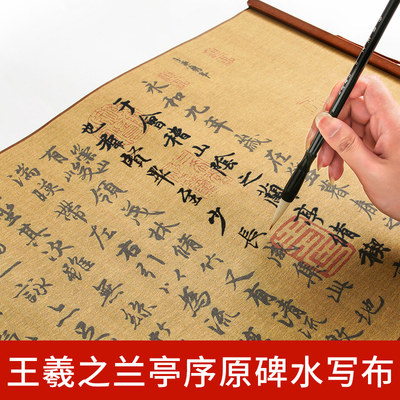 永和九年歲在癸丑暮春之
于會稽山陰之蘭亭脩禊
也羣賢畢至少長咸集此地
有崇山峻領茂林脩竹又有清流
湍暎帶左右引以為流
坐其次雖無絲
一詠
王羲之兰亭序原碑水写布